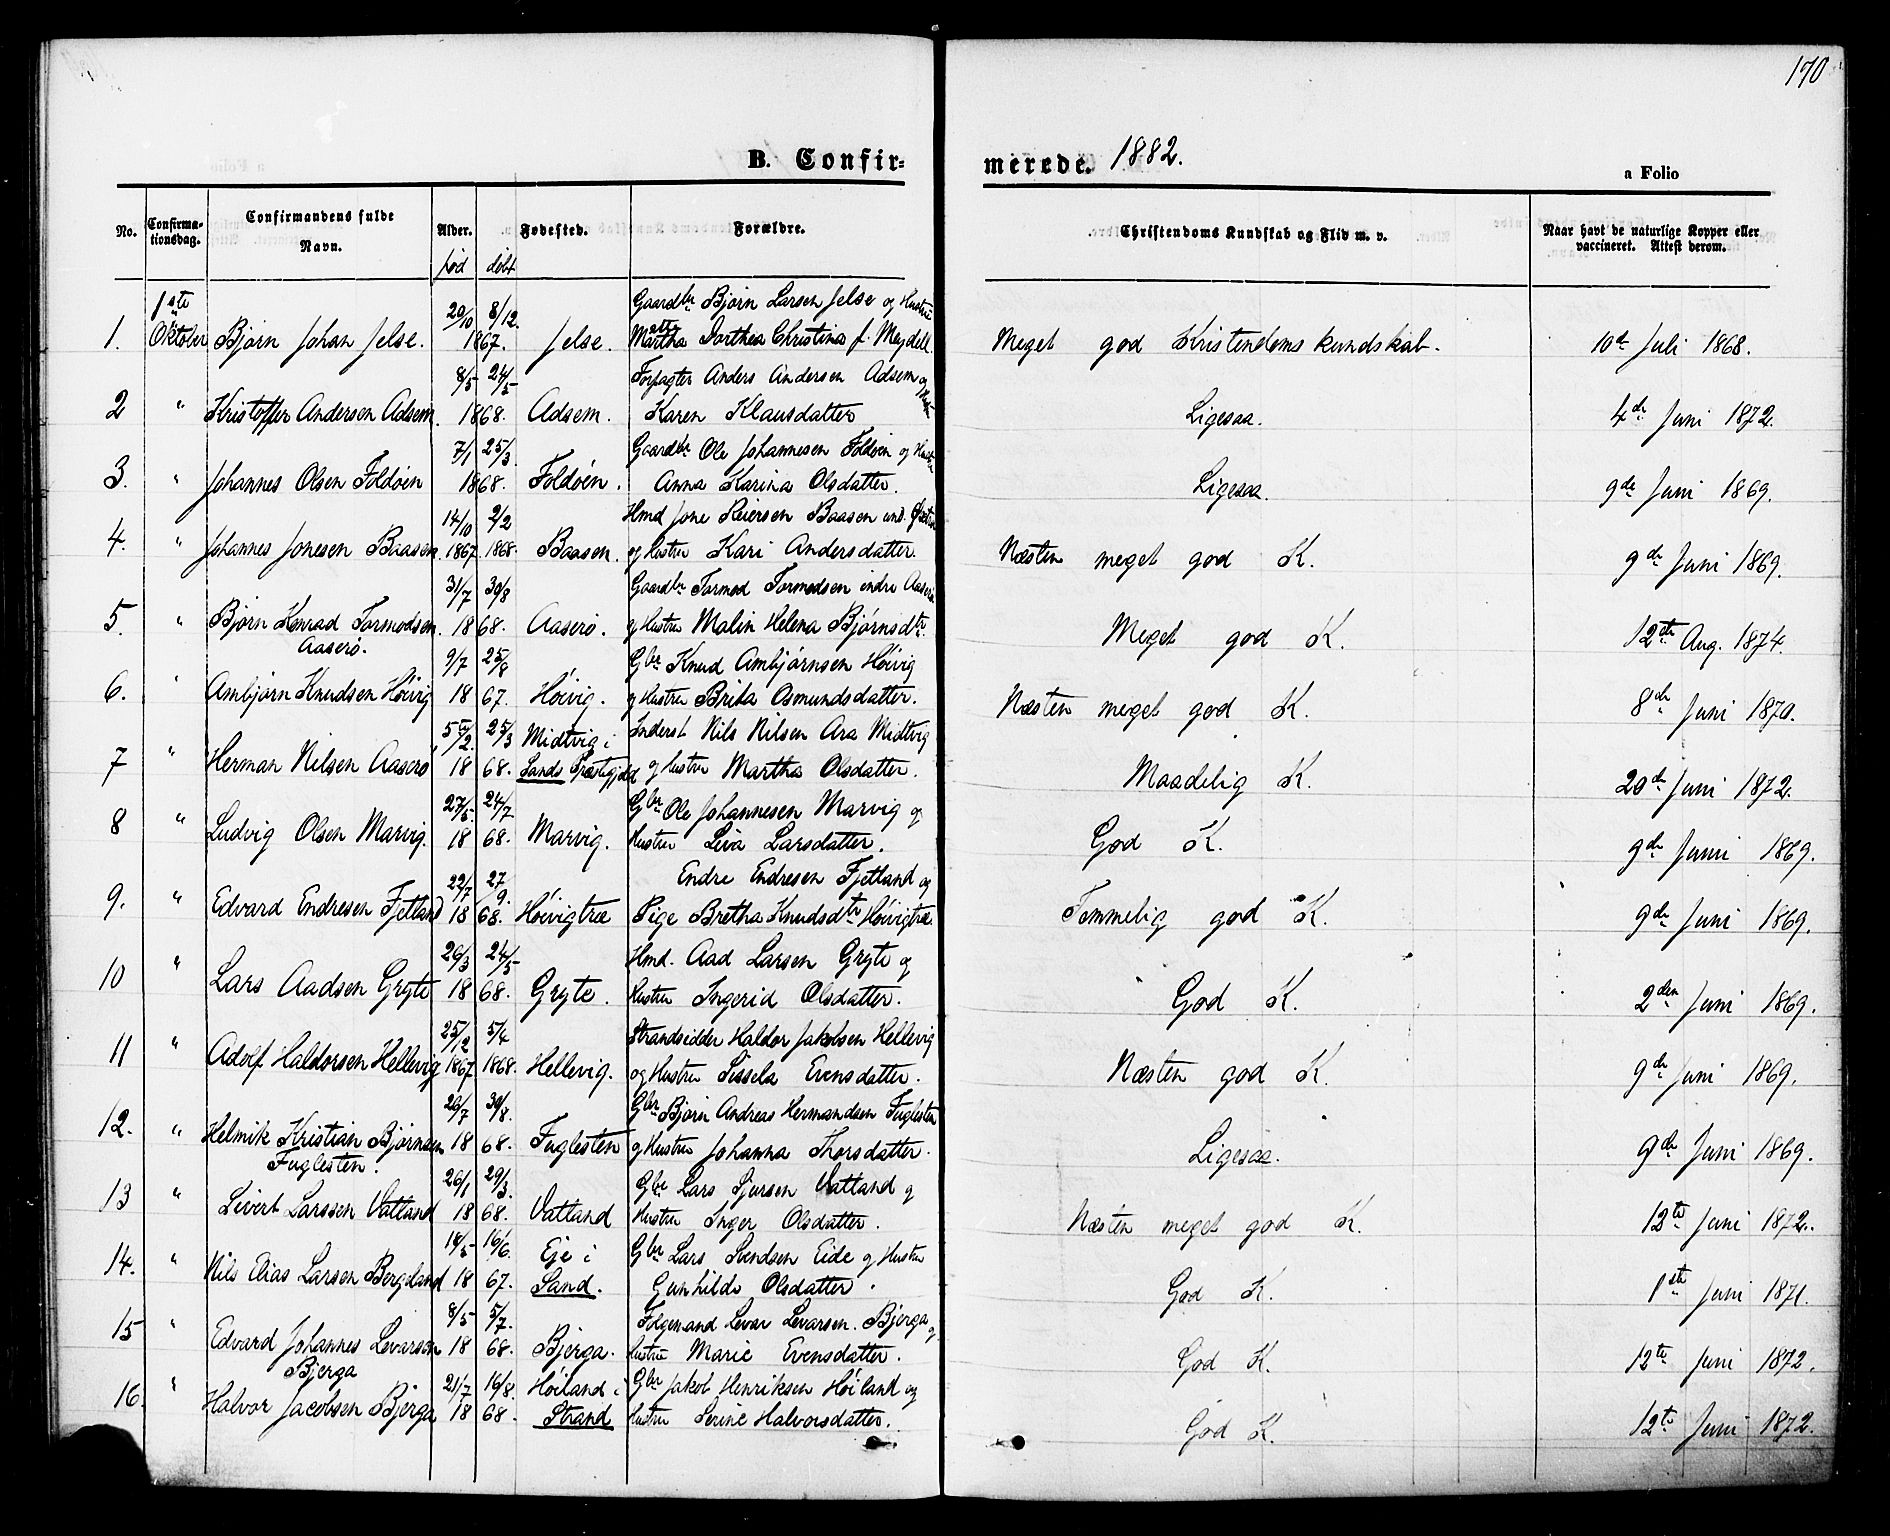 170
B. Confir-
merede. 1882.
a Folio
No.
Confirma-
tionsdag.
Confirmandens fulde
Navn.
Alder.
Fødested.
Forældre.
Christendoms Kundskab og Flid m. v.
Naar havt de naturlige Kopper eller
vaccineret. Attest derom.
født døbt
1ste 20/10 8/12. Gaardbr Bjørn Larsen Jelse og Hustru
1. Oktober Bjørn Johan Jelse. 1867. Jelse. Martha Dorthea Christina f. Meydell. Meget god Kristendomskundskab. 10d Juli 1868.
8/5 24/5 Forpagter Anders Andersen Adsem og Hustru
2 " Kristoffer Andersen Adsem. 1868. Adsem. Karen Klausdatter Ligesaa. 4de Juni 1872.
7/1 25/3 Gaardbr Ole Johannesen Foldøen og Hustru
3. " Johannes Olsen Foldøen 1868. Foldøen. Anna Karina Olsdatter. Ligesaa. 9de Juni 1869.
14/10 2/2 Hmd Jone Reiersen Baasen und.
4. " Johannes Jonesen Baasen. 1867 1868. Baasen. og Hustru Kari Andersdatter. Næsten meget god K. 9de Juni 1869.
31/7 30/8 Gaardbr Tormod Tormodsen indre Aaserø
5. " Bjørn Konrad Tormodsen. 1868. Aaserø. og Hustru Malin Helena Bjørnsdtr. Meget god K. 12te Aug. 1874.
Aaserø.
9/7 25/8 Gbr Knud Ambjørnsen Høivig
6. " Ambjørn Knudsen Høivig 1867. Høivig. og Hustru Brita Osmundsdatter. Næsten meget god K. 8de Juni 1870.
5te/2. 25/3 Midtvig i Inderst Nils Nilsen Ara Midtvig
7 " Herman Nilsen Aaserø 1868. Sands Præstegjeld og Hustru Martha Olsdatter. Maadelig K. 20de Juni 1872.
27/5 24/7 Gbr Ole Johannesen Marvig og
8 " Ludvig Olsen Marvig. 1868. Marvig. Hustru Liva Larsdatter. God K. 9de Juni 1869.
22/7 27/9. Endre Endresen Fjetland og
9. " Edvard Endresen Fjetland 1868. Høivigtræ Pige Bretha Knudsdtr Høivigtræ. Temmelig god K. 9de Juni 1869.
26/3 24/5 Hmd. Aad Larsen Gryte og
10 " Lars Aadsen Gryte 1868. Gryte. Hustru Ingerid Olsdatter. God K. 2den Juni 1869.
25/2 5/4 Strandsidder Haldor Jakobsen Hellevig
11 " Adolf Haldorsen Hellevig 1867 1868. Hellevig. og Hustru Sissela Evensdatter. Næsten god K. 9de Juni 1869.
26/7 30/8. Gbr Bjørn Andreas Hermandsen Fuglesten
12. " Helmik Kristian Bjørnsen 1868. Fuglesten og Hustru Johanna Thorsdatter. Ligesaa. 9de Juni 1869.
Fuglesten.
26/1 29/3. Gbr Lars Sjursen Vatland og
13 " Sivert Larssen Vatland 1868. Vatland Hustru Inger Olsdatter. Næsten meget god K. 12te Juni 1872.
18/5 16/6. Eje i Gbr Lars Svendsen Eide og Hustru
14. " Nils Elias Larsen Bergeland 1867. Sand. Gunhilde Olsdatter. God K. 1ste Juni 1871.
8/5 5/7. Folgemand Levar Levarsen. Bjerga og
15 " Edvard Johannes Levarsen 1868. Bjerga. Hustru Marie Evensdatter. God K. 12te Juni 1872.
Bjerga
21/7 16/8. Høiland i Gbr Jakob Henriksen Høiland og
16. " Halvor Jacobsen Bjerga 1868. Strand Hustru Serine Halvorsdatter. God K. 12te Juni 1872.